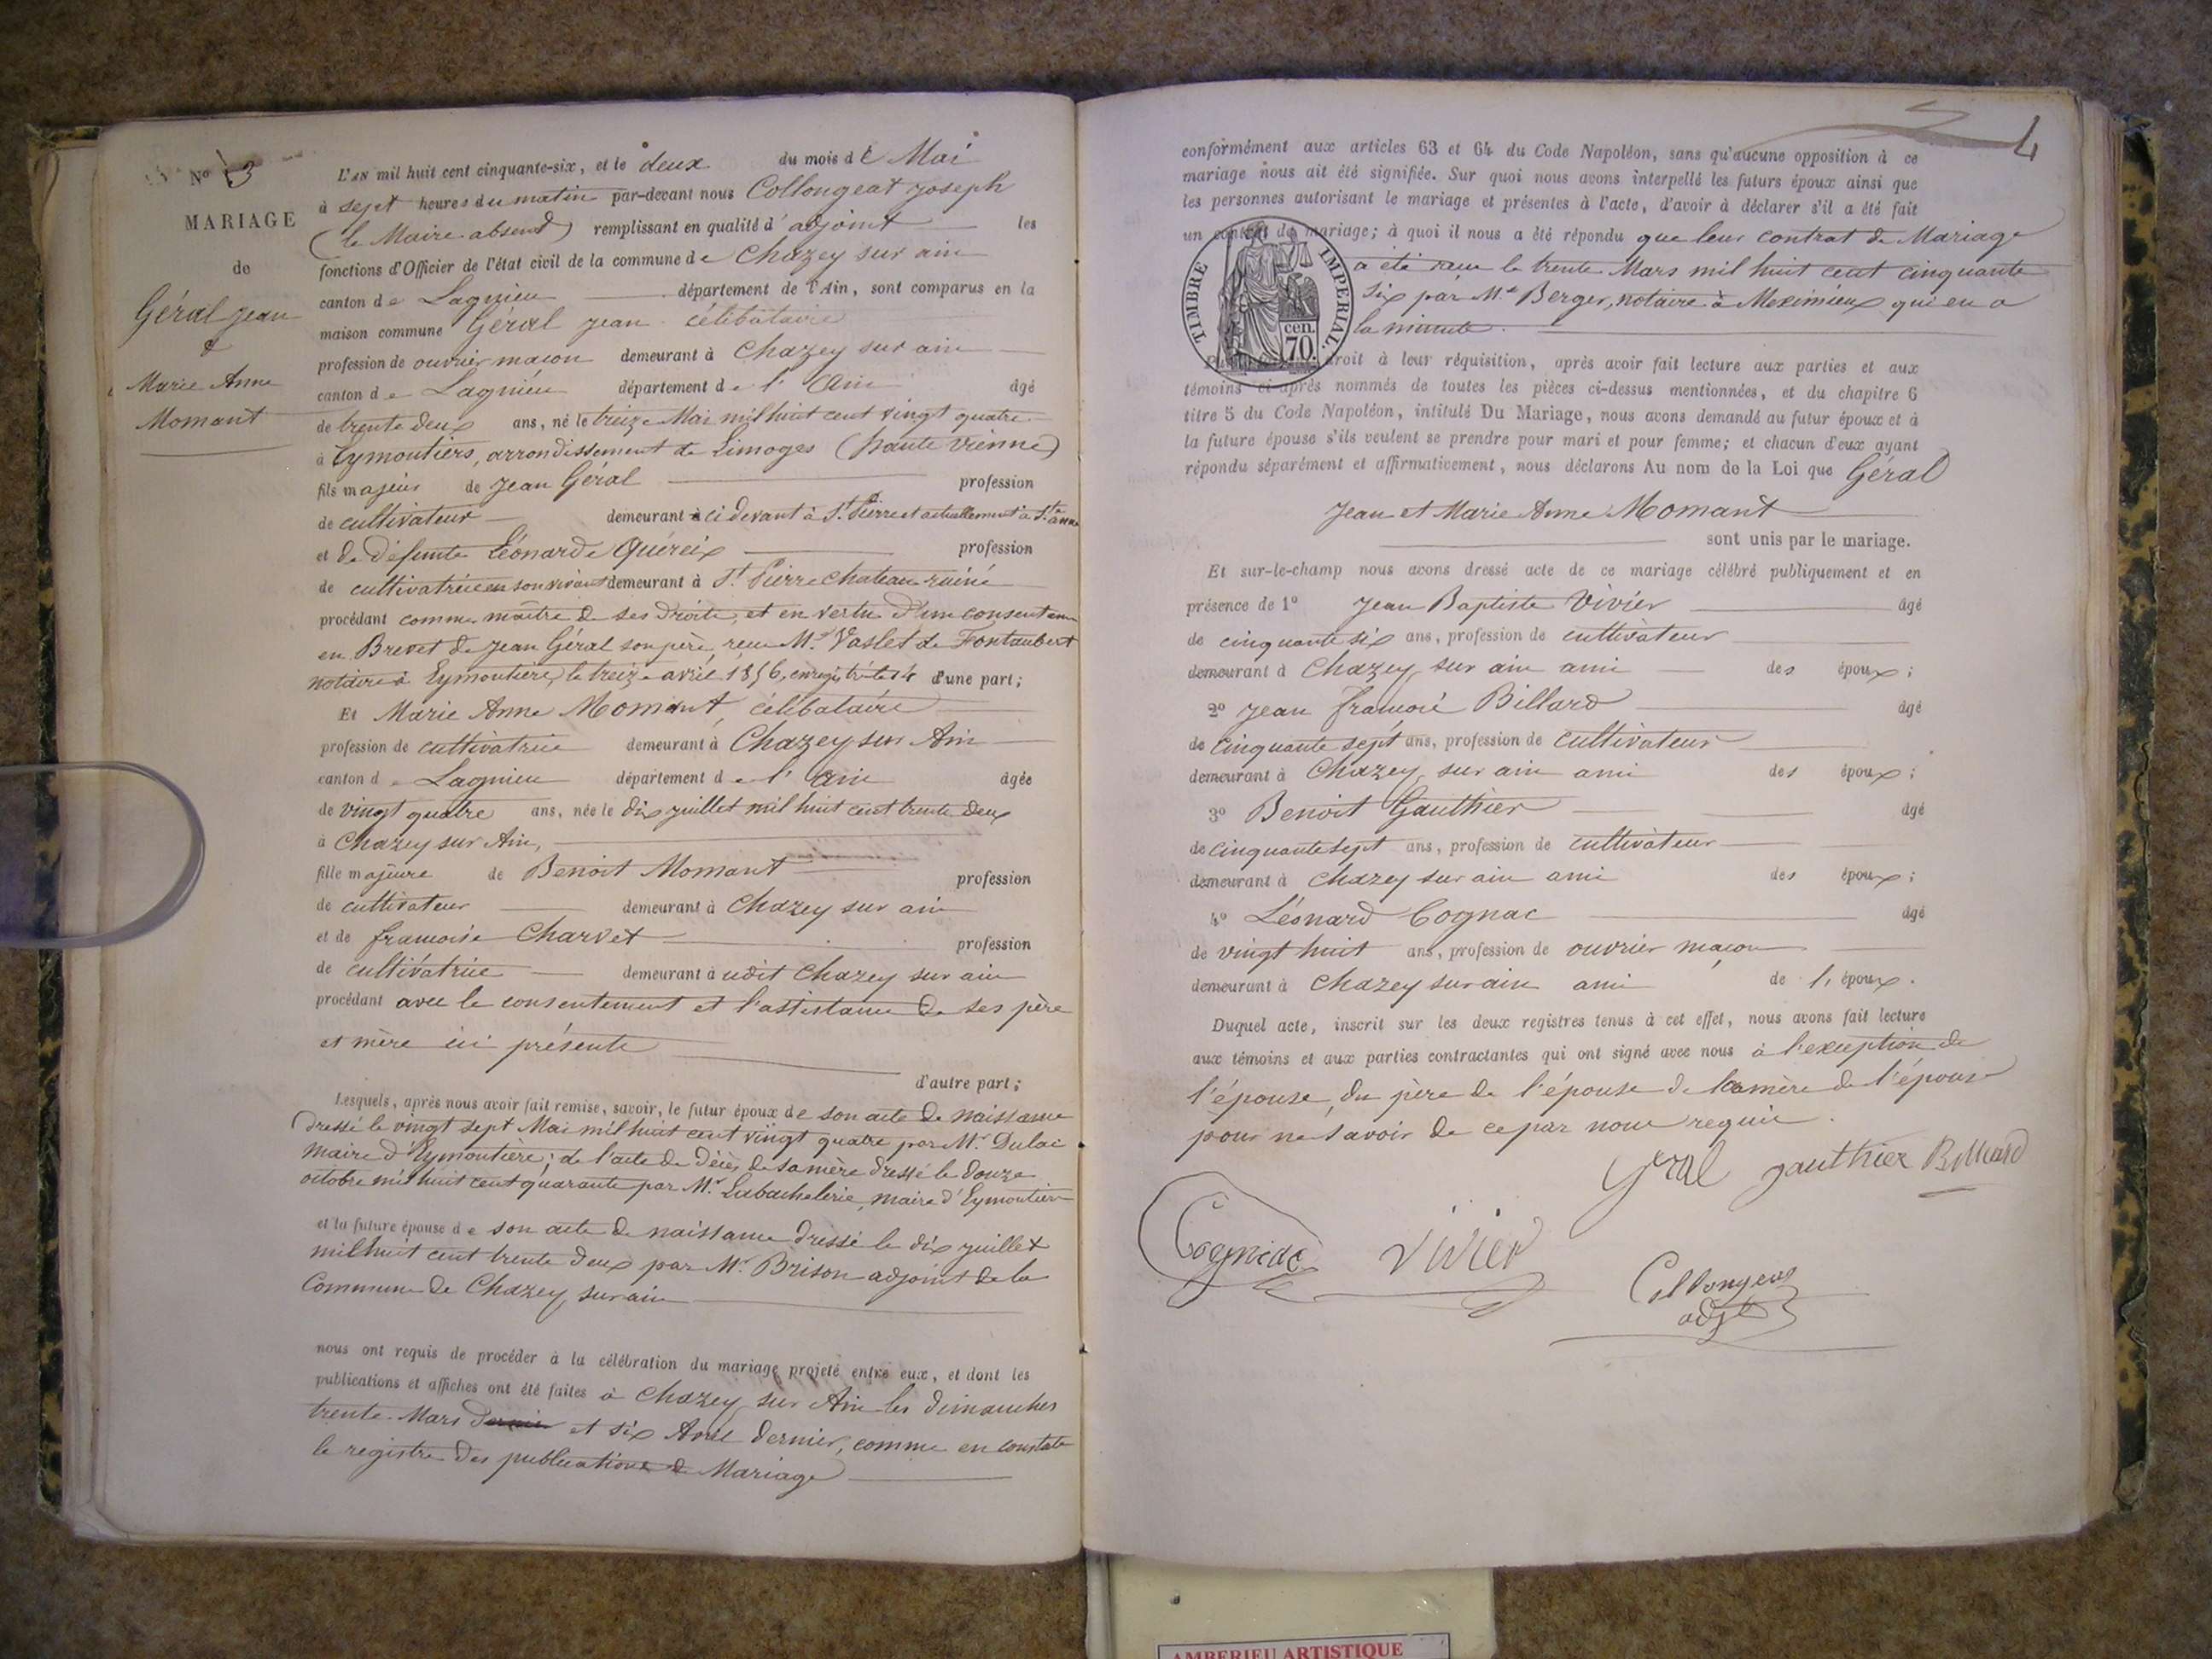 Nº 3
MARIAGE
de
Géral Jean
&
Marie Anne
Momant
L'AN mil huit cent cinquante-six, et le deux du mois de Mai
à sept heures du matin par-devant nous Collongeat Joseph
(le Maire absent) remplissant en qualité d'adjoint les
fonctions d'Officier de l'état civil de la commune de Chazey sur ain
canton de Lagnieu département de l'Ain, sont comparus en la
maison commune Géral Jean célibataire
profession de ouvrier maçon demeurant à Chazey sur ain
canton de Lagnieu département de l'Ain âgé
de trente deux ans, né le treize Mai mil huit cent vingt quatre
à Eymoutiers, arrondissement de Limoges (haute Vienne)
fils majeur de Jean Géral profession
de cultivateur demeurant à ci devant à St Pierre et actuellement à Ste anne
et de défunte Léonarde Quéreix profession
de cultivatrice en son vivant demeurant à St Pierre Chateau ruiné
procédant comme maître de ses droits, et en vertu d'un consentem
en Brevet de Jean Géral son père, reçu Me Vaslet de Fontaubert
notaire à Eymoutière, le treize avril 1856, enregistré le 14 d'une part;
Et Marie Anne Momant, célibataire
profession de cultivatrice demeurant à Chazey sur Ain
canton de Lagnieu département de l'Ain âgée
de vingt quatre ans, née le dix juillet mil huit cent trente deux
à Chazey sur Ain,
fille majeure de Benoit Momant profession
de cultivateur demeurant à Chazey sur ain
et de françoise Charvet profession
de cultivatrice demeurant à udit Chazey sur ain
procédant avec le consentement et l'assistance de ses père
et mère ici présents
d'autre part;
Lesquels, après nous avoir fait remise, savoir, le futur époux de son acte de naissance
dressé le vingt sept Mai mil huit cent vingt quatre par Mr Dulac
maire d'Eymoutière; de l'acte de décès de sa mère dressé le douze
octobre mil huit cent quarante par Mr Labachelerie, maire d'Eymoutiers
et la future épouse de son acte de naissance dressé le dix juillet
mil huit cent trente deux par Mr Brison adjoint de la
Commune de Chazey, sur ain
nous ont requis de procéder à la célébration du mariage projeté entre eux, et dont les
publications et affiches ont été faites à Chazey sur Ain les dimanches
trente Mars et six Avril dernier, comme en constate
le registre des publications de Mariage
4
conformément aux articles 63 et 64 du Code Napoléon, sans qu'aucune opposition à ce
mariage nous ait été signifiée. Sur quoi nous avons interpellé les futurs époux ainsi que
les personnes autorisant le mariage et présentes à l'acte, d'avoir à déclarer s'il a été fait
un contrat de mariage; à quoi il nous a été répondu que leur contrat de Mariage
a été reçu le trente Mars mil huit cent cinquante
six par Me Berger, notaire à Meximieux qui en a
la minute.
TIMBRE IMPERIAL.
cen.
70.
droit à leur réquisition, après avoir fait lecture aux parties et aux
témoins ci-après nommés de toutes les pièces ci-dessus mentionnées, et du chapitre 6
titre 5 du Code Napoléon, intitulé Du Mariage, nous avons demandé au futur époux et à
la future épouse s'ils veulent se prendre pour mari et pour femme; et chacun d'eux ayant
répondu séparément et affirmativement, nous déclarons Au nom de la Loi que Géral
Jean et Marie Anne Momant
sont unis par le mariage.
Et sur-le-champ nous avons dressé acte de ce mariage célébré publiquement et en
présence de 1º Jean Baptiste Vivier âgé
de cinquante six ans, profession de cultivateur
demeurant à Chazey, sur ain ami des époux;
2º Jean françois Billard âgé
de cinquante sept ans, profession de cultivateur
demeurant à Chazey, sur ain ami des époux;
3º Benoit Gauthier âgé
de cinquante sept ans, profession de cultivateur
demeurant à Chazey sur ain ami des époux;
4º Léonard Cognac âgé
de vingt huit ans, profession de ouvrier maçon
demeurant à Chazey sur ain ami de l'époux.
Duquel acte, inscrit sur les deux registres tenus à cet effet, nous avons fait lecture
aux témoins et aux parties contractantes qui ont signé avec nous à l'exception de
l'épouse, du père de l'épouse de la mère de l'épouse
pour ne savoir de ce par nous requis.
Géral gauthier Billiard
Cogniac Vivier Collongeat
adjt
AMBERIEU ARTISTIQUE